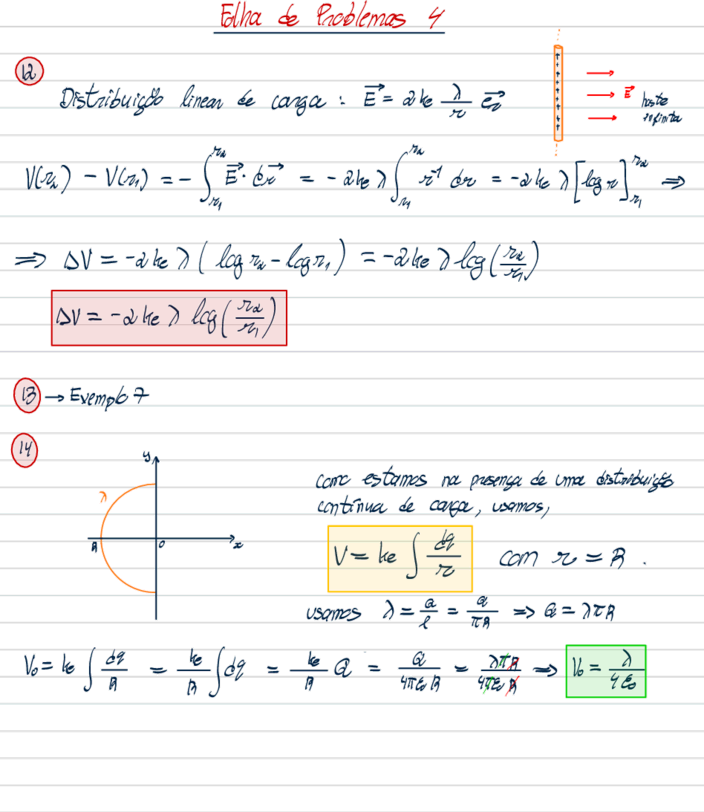 Folha de Problemas 4
12
Distribuição linear de carga : E⃗ = 2ke λ/r e⃗r
E⃗ haste
infinita
V(r2) - V(r1) = - ∫_{r1}^{r2} E⃗ · dr⃗ = - 2ke λ ∫_{r1}^{r2} r⁻¹ dr = -2ke λ [log r]_{r1}^{r2} ⇒
⇒ ΔV = -2ke λ ( log r2 - log r1 ) = -2ke λ log(r2/r1)
ΔV = -2ke λ log(r2/r1)
13 → Exemplo 7
14
y
λ
R O x
como estamos na presença de uma distribuição
contínua de carga, usamos,
V = ke ∫ dq/r com r = R .
usamos λ = Q/l = Q/πR ⇒ Q = λπR
V0 = ke ∫ dq/R = ke/R ∫ dq = ke/R Q = Q/4πε0R = λπR/4πε0R ⇒ V0 = λ/4ε0